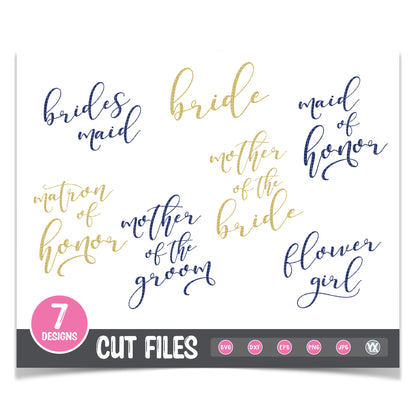 brides
maid
bride
maid
of
honor
matron
of
honor
mother
of the
groom
mother
of the
bride
flower
girl
7
DESIGNS
CUT FILES
SVG
DXF
EPS
PNG
JPG
YX